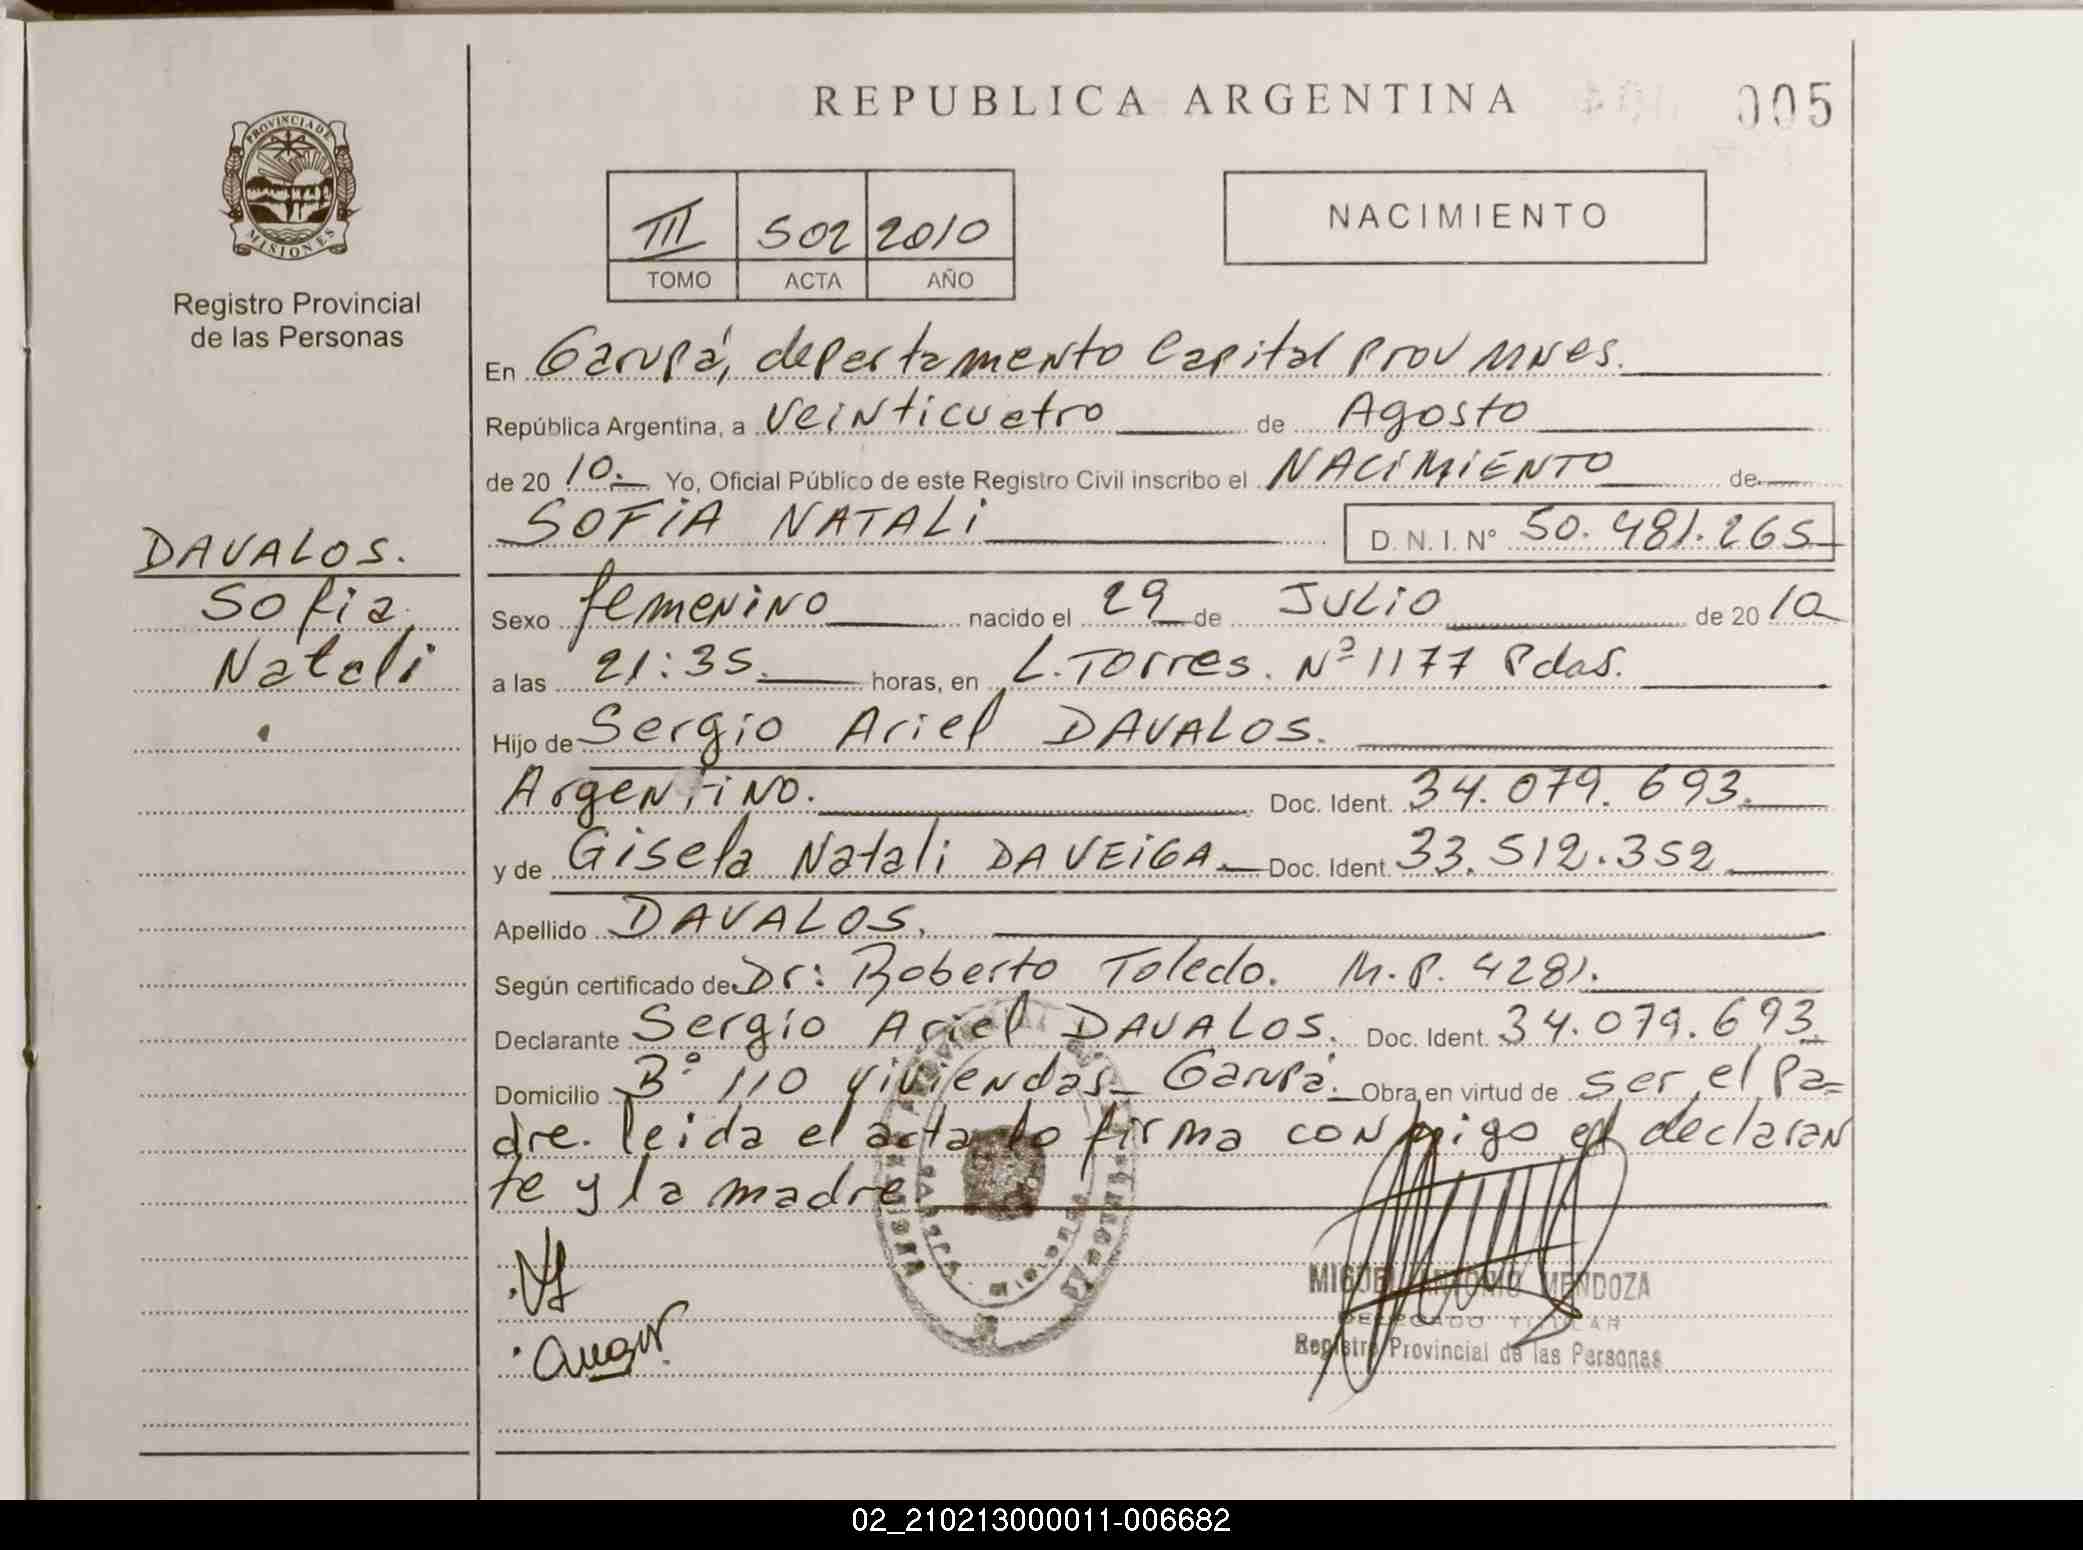 REPUBLICA ARGENTINA
005
PROVINCIA DE
MISIONES
Registro Provincial
de las Personas
III 502 2010
TOMO ACTA AÑO
NACIMIENTO
En Garupá, departamento Capital Prov Mnes.
República Argentina, a veinticuatro de Agosto
de 20 10. Yo, Oficial Público de este Registro Civil inscribo el NACIMIENTO de
SOFIA NATALI D. N. I. N° 50.481.265
DAVALOS.
Sofia
Natali
Sexo femenino nacido el 29 de JULIO de 20 10
a las 21:35. horas, en L. Torres. Nº 1177 Pdas.
Hijo de Sergio Ariel DAVALOS.
Argentino. Doc. Ident. 34.079.693.
y de Gisela Natali DA VEIGA. Doc. Ident. 33.512.352
Apellido DAVALOS.
Según certificado de Dr: Roberto Toledo. M.P. 4281.
Declarante Sergio Ariel DAVALOS. Doc. Ident. 34.079.693.
Domicilio Bº 110 viviendas - Garupá. Obra en virtud de ser el pa=
dre. leida el acta lo firma conmigo el declaran
te y la madre
MIGUEL ANTONIO MENDOZA
DELEGADO TITULAR
Registro Provincial de las Personas
02_210213000011-006682